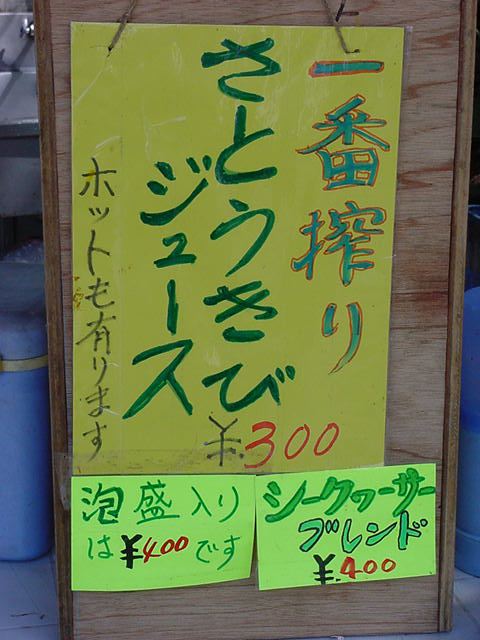 一番搾り
さとうきび
ジュース
¥300
ホットも有ります
泡盛入り
は¥400です
シークヮーサー
ブレンド
¥400